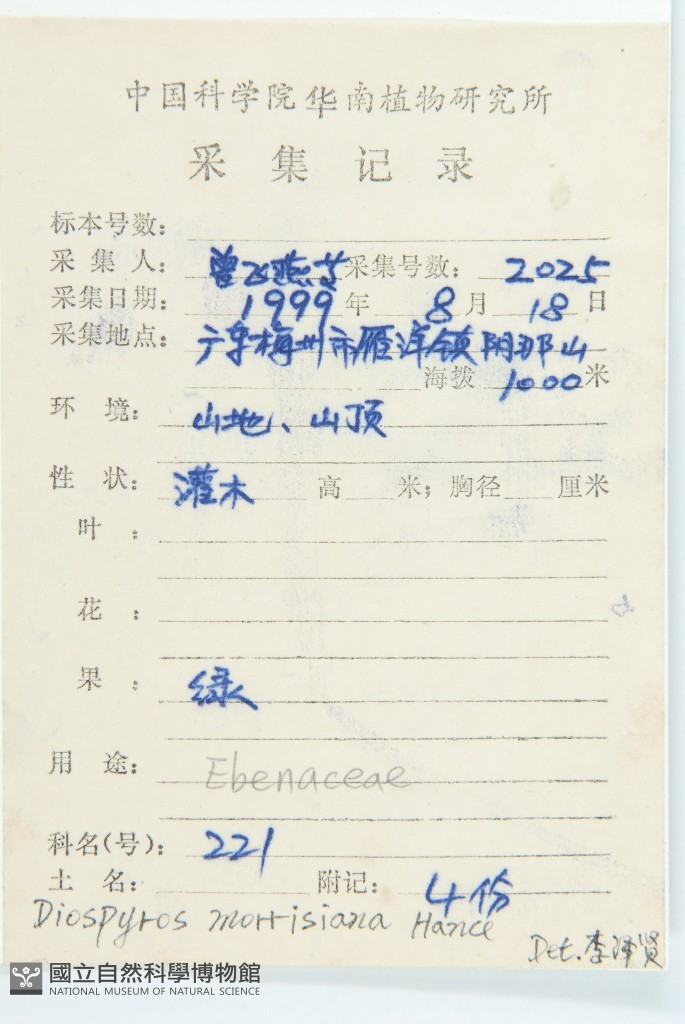 中国科学院华南植物研究所
采集记录
标本号数：
采集人：曾飞燕等采集号数：2025
采集日期：1999年8月18日
采集地点：广东梅州市雁洋镇阴那山
海拨1000米
环境：山地、山顶
性状：灌木 高 米；胸径 厘米
叶：
花：
果：绿
用途：Ebenaceae
科名(号)：221
土名： 附记：4份
Diospyros morrisiana Hance
Det. 李泽贤
國立自然科學博物館
NATIONAL MUSEUM OF NATURAL SCIENCE